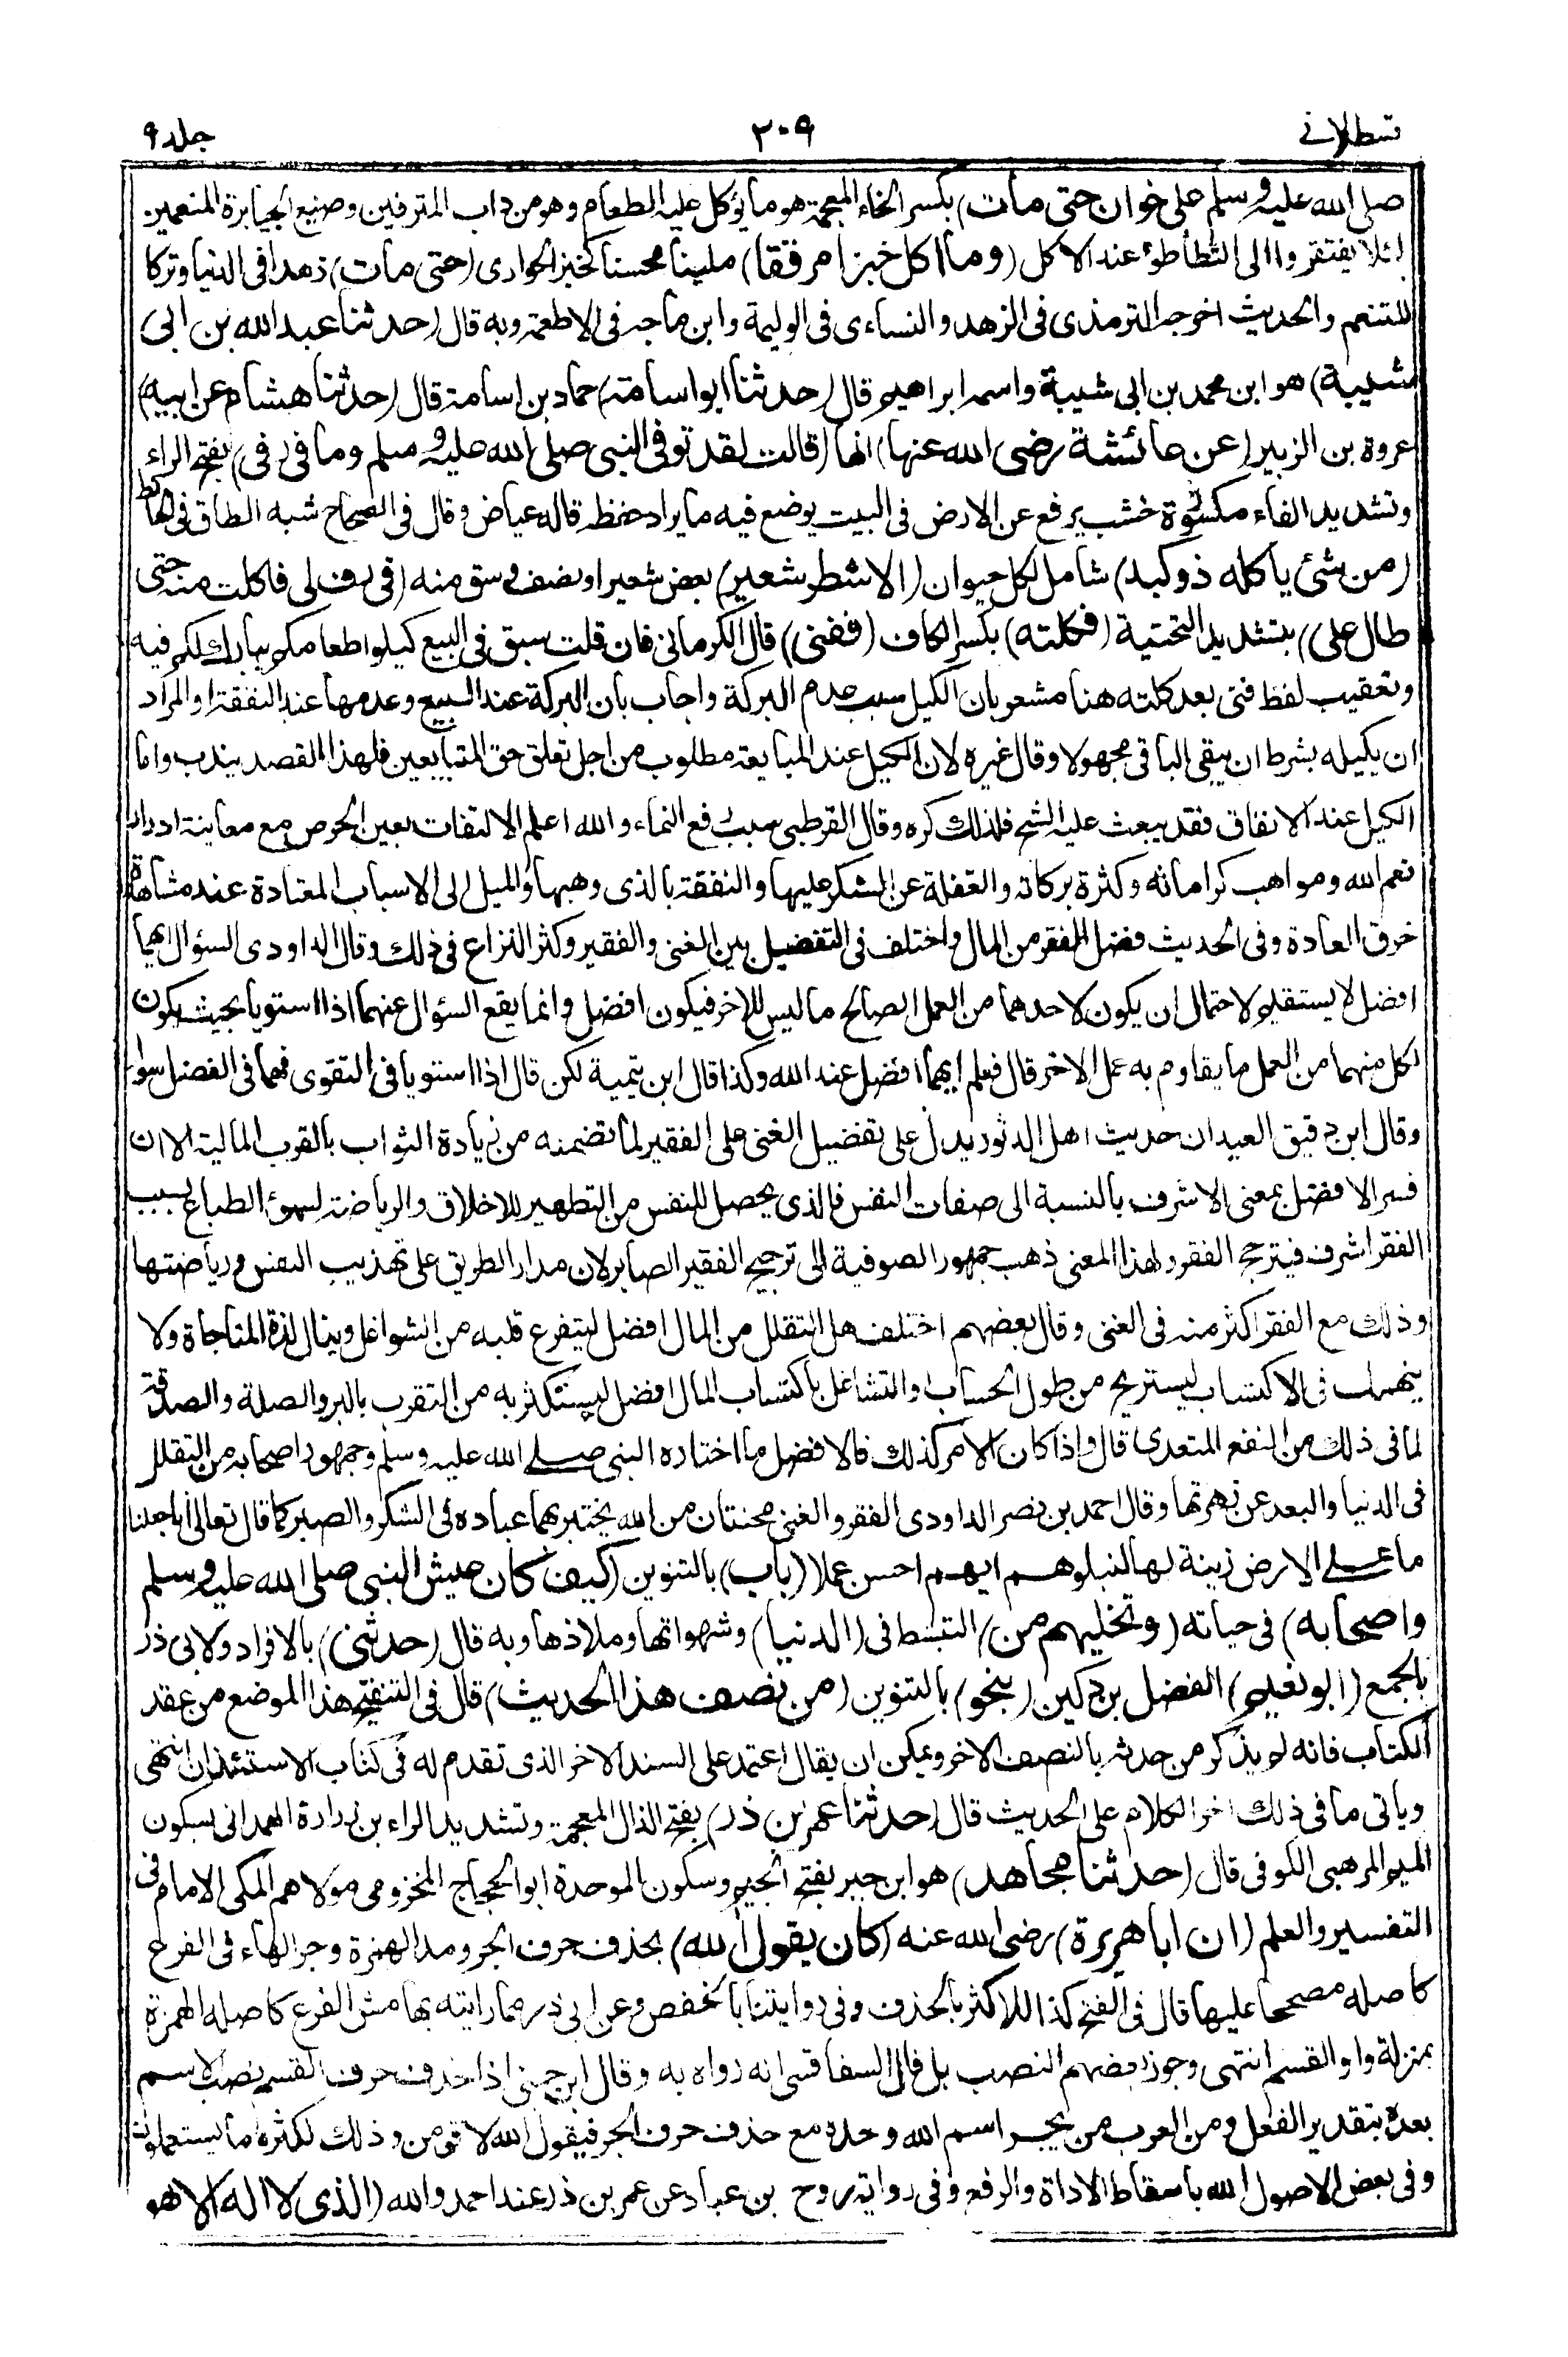 قسطلانے ۲۰۹ جلد ۹
صلى الله عليه وسلم على خوان حتى مات) بكسر الخاء المعجمة هو ما يؤكل عليه الطعام وهو من داب المترفين وصنيع الجبابرة المنعمين
لئلا يفتقروا الى التطأطؤ عند الاكل (وما اكل خبزا مرققا) ملينا محسنا كخبز الحوارى (حتى مات) زهدا فى الدنيا وتركا
للتنعم والحديث اخرجه الترمذى فى الزهد والنساءى فى الوليمة وابن ماجه فى الاطعمة وبه قال (حدثنا عبد الله بن ابى
شيبة) هو ابن محمد بن ابى شيبة واسمه ابراهيم قال (حدثنا ابو اسامة) حماد بن اسامة قال (حدثنا هشام عن ابيه)
عروة بن الزبير (عن عائشة رضى الله عنها) انها (قالت لقد توفى النبى صلى الله عليه وسلم وما فى رفى) بفتح الراء
وتشديد الفاء مكسورة خشب يرفع عن الارض فى البيت يوضع فيه ما يراد حفظه قاله عياض وقال فى الصحاح شبه الطاق فى الحائط
(من شئ ياكله ذو كبد) شامل لكل حيوان (الا شطر شعير) بعض شعير او نصف وسق منه (فى رف لى فاكلت منه حتى
طال على) بتشديد التحتية (فكلته) بكسر الكاف (ففنى) قال الكرمانى فان قلت سبق فى البيع كيلوا طعامكم يبارك لكم فيه
وتعقيب لفظ فنى بعد كلته هنا مشعر بان الكيل سبب عدم البركة واجاب بان البركة عند البيع وعدمها عند النفقة او المراد
ان يكيله بشرط ان يبقى الباقى مجهولا وقال غيره لان الكيل عند المبايعة مطلوب من اجل تعلق حق المتبايعين فلهذا القصد يندب واما
الكيل عند الانفاق فقد يبعث عليه الشح فلذلك كره وقال القرطبى سبب رفع النماء والله اعلم الالتفات بعين الحرص مع معاينة ادرار
نعم الله ومواهب كراماته وكثرة بركاته والغفلة عن الشكر عليها والنفقة بالذى وهبها والميل الى الاسباب المعتادة عند مشاهدة
خرق العادة وفى الحديث فضل الفقر من المال واختلف فى التفضيل بين الغنى والفقير وكثر النزاع فى ذلك وقال الداودى السؤال ايهما
افضل لا يستقيم لاحتمال ان يكون لاحدهما من العمل الصالح ما ليس للاخر فيكون افضل وانما يقع السؤال عنهما اذا استويا بحيث يكون
لكل منهما من العمل ما يقاوم به عمل الاخر قال فعلم ايهما افضل عند الله وكذا قال ابن تيمية لكن قال اذا استويا فى التقوى فهما فى الفضل سواء
وقال ابن دقيق العيد ان حديث اهل الدثور يدل على تفضيل الغنى على الفقير لما تضمنه من زيادة الثواب بالقرب المالية الا ان
فسر الافضل بمعنى الاشرف بالنسبة الى صفات النفس فالذى يحصل للنفس من التطهير للاخلاق والرياضة لسوء الطباع بسبب
الفقر اشرف فيترجح الفقر ولهذا المعنى ذهب جمهور الصوفية الى ترجيح الفقير الصابر لان مدار الطريق على تهذيب النفس ورياضتها
وذلك مع الفقر اكثر منه فى الغنى وقال بعضهم اختلف هل التقلل من المال افضل ليتفرغ قلبه من الشواغل وينال لذة المناجاة ولا
ينهمك فى الاكتساب ليستريح من طول الحساب او التشاغل باكتساب المال افضل ليستكثر به من التقرب بالبر والصلة والصدقة
لما فى ذلك من النفع المتعدى قال واذا كان الامر كذلك فالافضل ما اختاره النبى صلے الله عليه وسلم وجمهور اصحابه من التقلل
فى الدنيا والبعد عن زهرتها وقال احمد بن نصر الداودى الفقر والغنى محنتان من الله يختبر بهما عباده فى الشكر والصبر كما قال تعالى انا جعلنا
ما علے الارض زينة لها لنبلوهم ايهم احسن عملا (باب) بالتنوين (كيف كان عيش النبى صلى الله عليه وسلم
واصحابه) فى حياته (وتخليهم من) التبسط فى (الدنيا) وشهواتها وملاذها وبه قال (حدثنى) بالافراد ولابى ذر
بالجمع (ابو نعيم) الفضل بن دكين (بنحو) بالتنوين (من نصف هذا الحديث) قال فى التنقيح هذا الموضع من عقد
الكتاب فانه لم يذكر من حدثه بالنصف الاخر ويمكن ان يقال اعتمد على السند الاخر الذى تقدم له فى كتاب الاستئذان انتهى
وياتى ما فى ذلك اخر الكلام على الحديث قال (حدثنا عمر بن ذر) بفتح الذال المعجمة وتشديد الراء بن زرارة الهمدانى بسكون
الميم المرهبى الكوفى قال (حدثنا مجاهد) هو ابن جبر بفتح الجيم وسكون الموحدة ابو الحجاج المخزومى مولاهم المكى الامام فى
التفسير والعلم (ان ابا هريرة) رضى الله عنه (كان يقول الله) بحذف حرف الجر ومد الهمزة وجر الهاء فى الفرع
كاصله مصححا عليها قال فى الفتح كذا للاكثر بالحذف وفى روايتنا بالخفض وعن ابى ذر مما رايته بهامش الفرع كاصله الهمزة
بمنزلة واو القسم انتهى وجوز بعضهم النصب بل قال السفاقسى انه رواه به وقال ابن جنى اذا حذف حرف القسم نصب الاسم
بعده بتقدير الفعل ومن العرب من يجر اسم الله وحده مع حذف حرف الجر فيقول الله لاقومن وذلك لكثرة ما يستعملونه
وفى بعض الاصول الله باسقاط الاداة والرفع وفى رواية روح بن عباد عن عمر بن ذر عند احمد والله (الذى لا اله الا هو